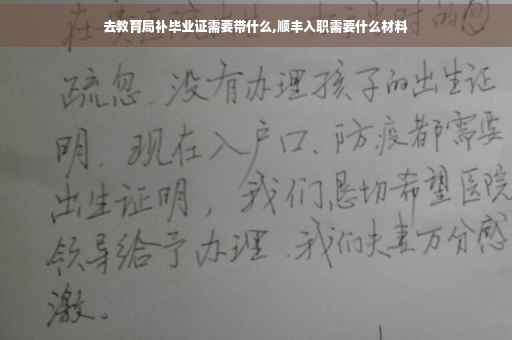 去教育局补毕业证需要带什么,顺丰入职需要什么材料
疏忽.没有办理孩子的出生证
明.现在入户口、防疫都需要
出生证明,我们恳切希望医院
领导给予办理.我们夫妻万分感
激。